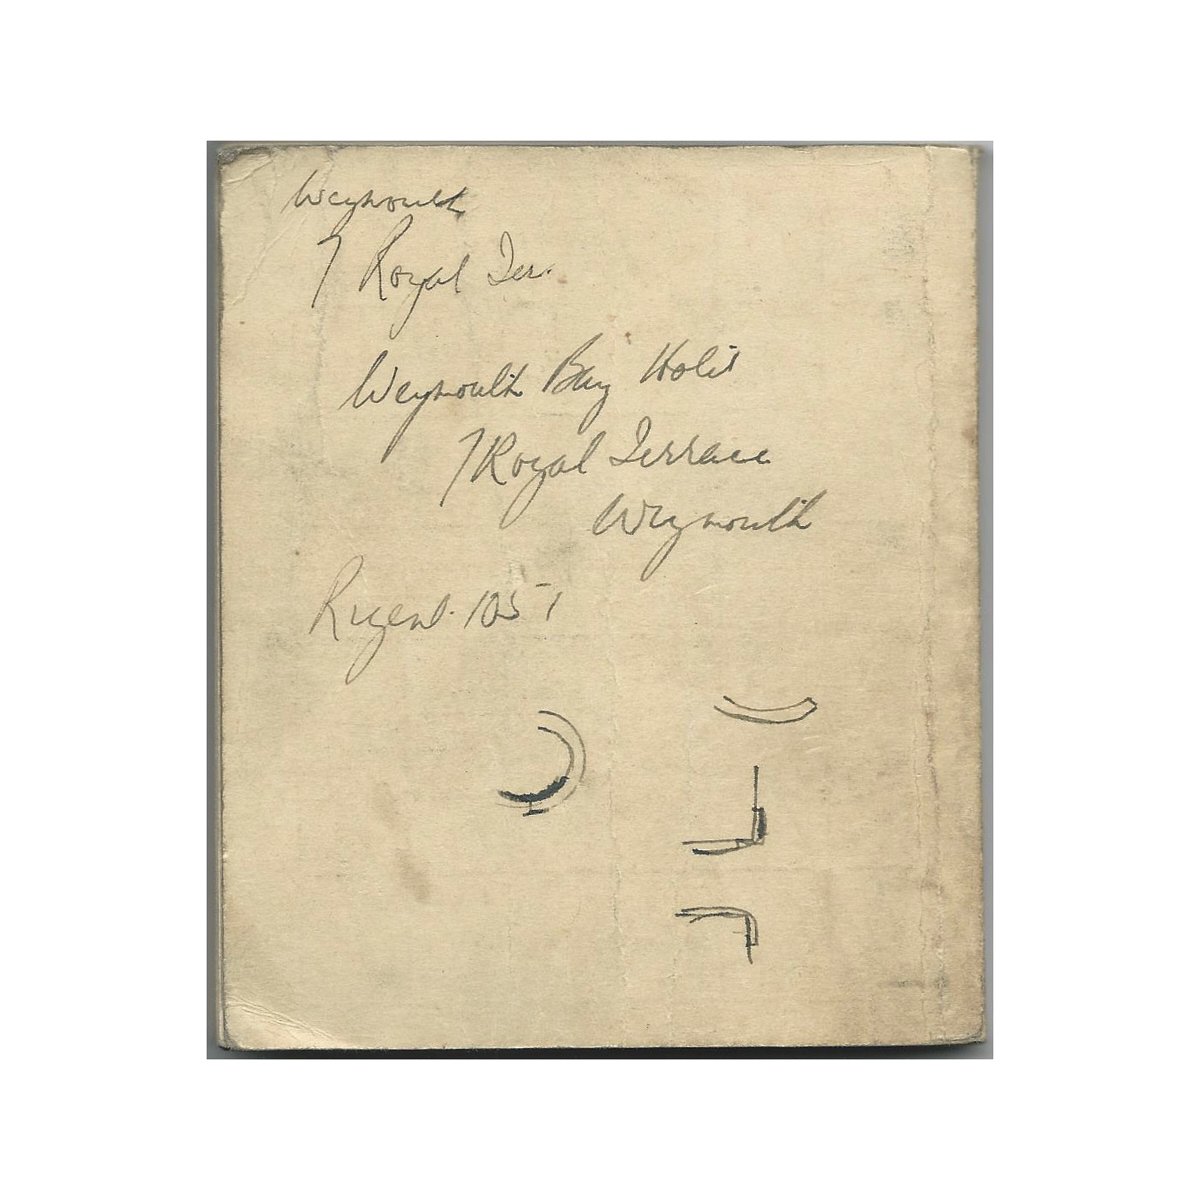 Weymouth
7 Royal Ter.
Weymouth Bay Hotel
7 Royal Terrace
Weymouth
Regent. 1051